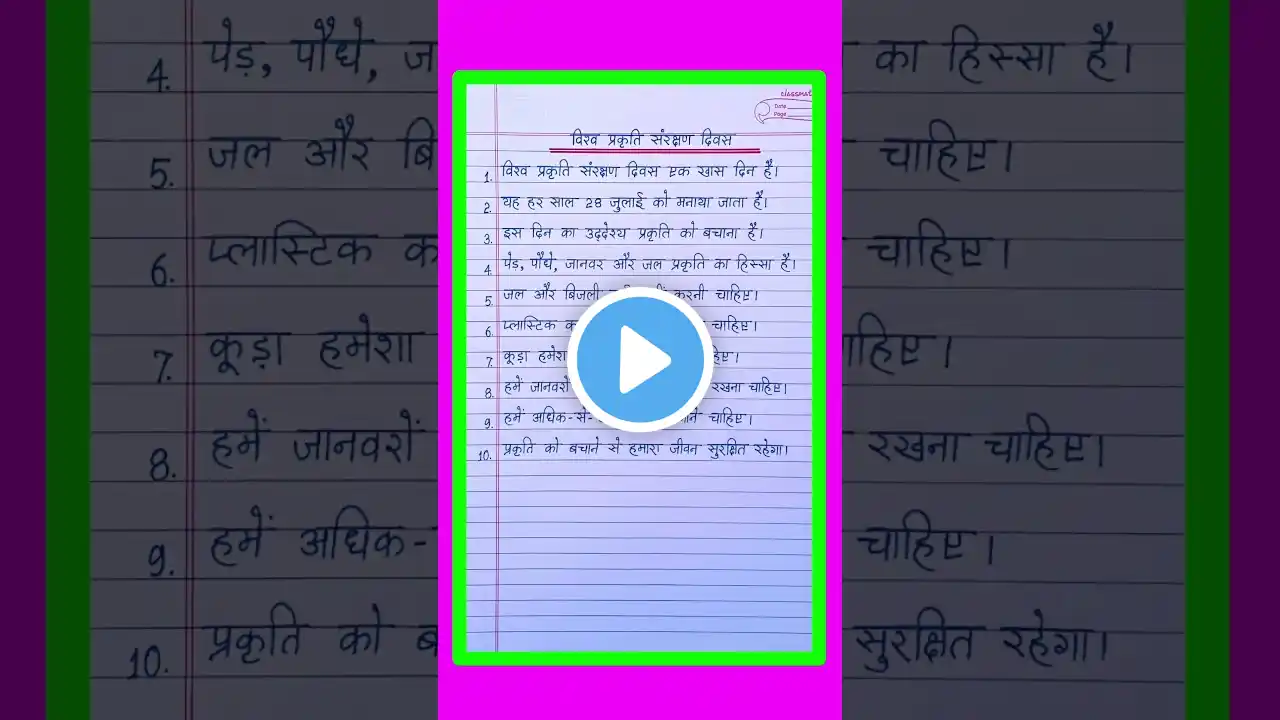 classmate
Date
Page
विश्व प्रकृति संरक्षण दिवस
1. विश्व प्रकृति संरक्षण दिवस एक खास दिन है।
2. यह हर साल 28 जुलाई को मनाया जाता है।
3. इस दिन का उद्देश्य प्रकृति को बचाना है।
4. पेड़, पौधे, जानवर और जल प्रकृति का हिस्सा है।
5. जल और बिजली करनी चाहिए।
6. प्लास्टिक चाहिए।
7. कूड़ा हमेशा
8. हमें जानवरों रखना चाहिए।
9. हमें अधिक-से- चाहिए।
10. प्रकृति को बचाने से हमारा जीवन सुरक्षित रहेगा।
4. पेड़, पौधे, का हिस्सा है।
5. जल और चाहिए।
6. प्लास्टिक चाहिए।
7. कूड़ा हमेशा
8. हमें जानवरों रखना चाहिए।
9. हमें अधिक- चाहिए।
10. प्रकृति को सुरक्षित रहेगा।